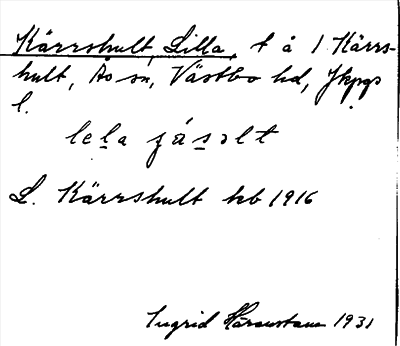 Kärrshult, Lilla, t å 1 Kärrs-
hult, Ås sn, Västbo hd, Jkpgs
l.
lela ʒásəlt
L. Kärrshult hb 1916
Ingrid 1931